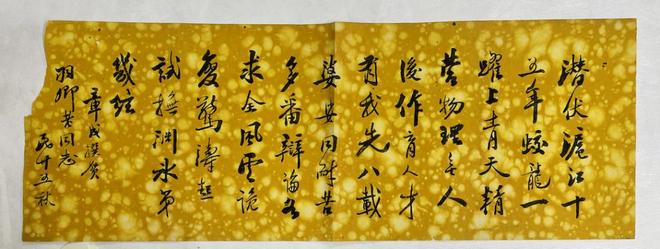 潜伏滬江十
五年蛟龍一
躍上青天精
營物理無人
後作育人才
有我先八載
婆娑同耐苦
多番辯論為
求全風雲詭
驚濤起
試撫淵冰第
幾弦
章成謹賀
羽卿老同志
十五秋